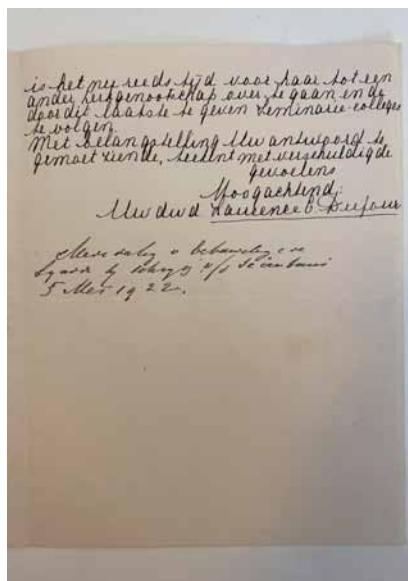 is het nu reeds tijd voor haar tot een
ander kerkgenootschap over te gaan en de
door dit laatste te geven seminarie-colleges
te volgen.
Met belangstelling Uw antwoord te
gemoet ziende, teekent met verschuldigde
gevoelens
Hoogachtend,
Uw dwd Laurence C. Dufour
5 Mei 1922.